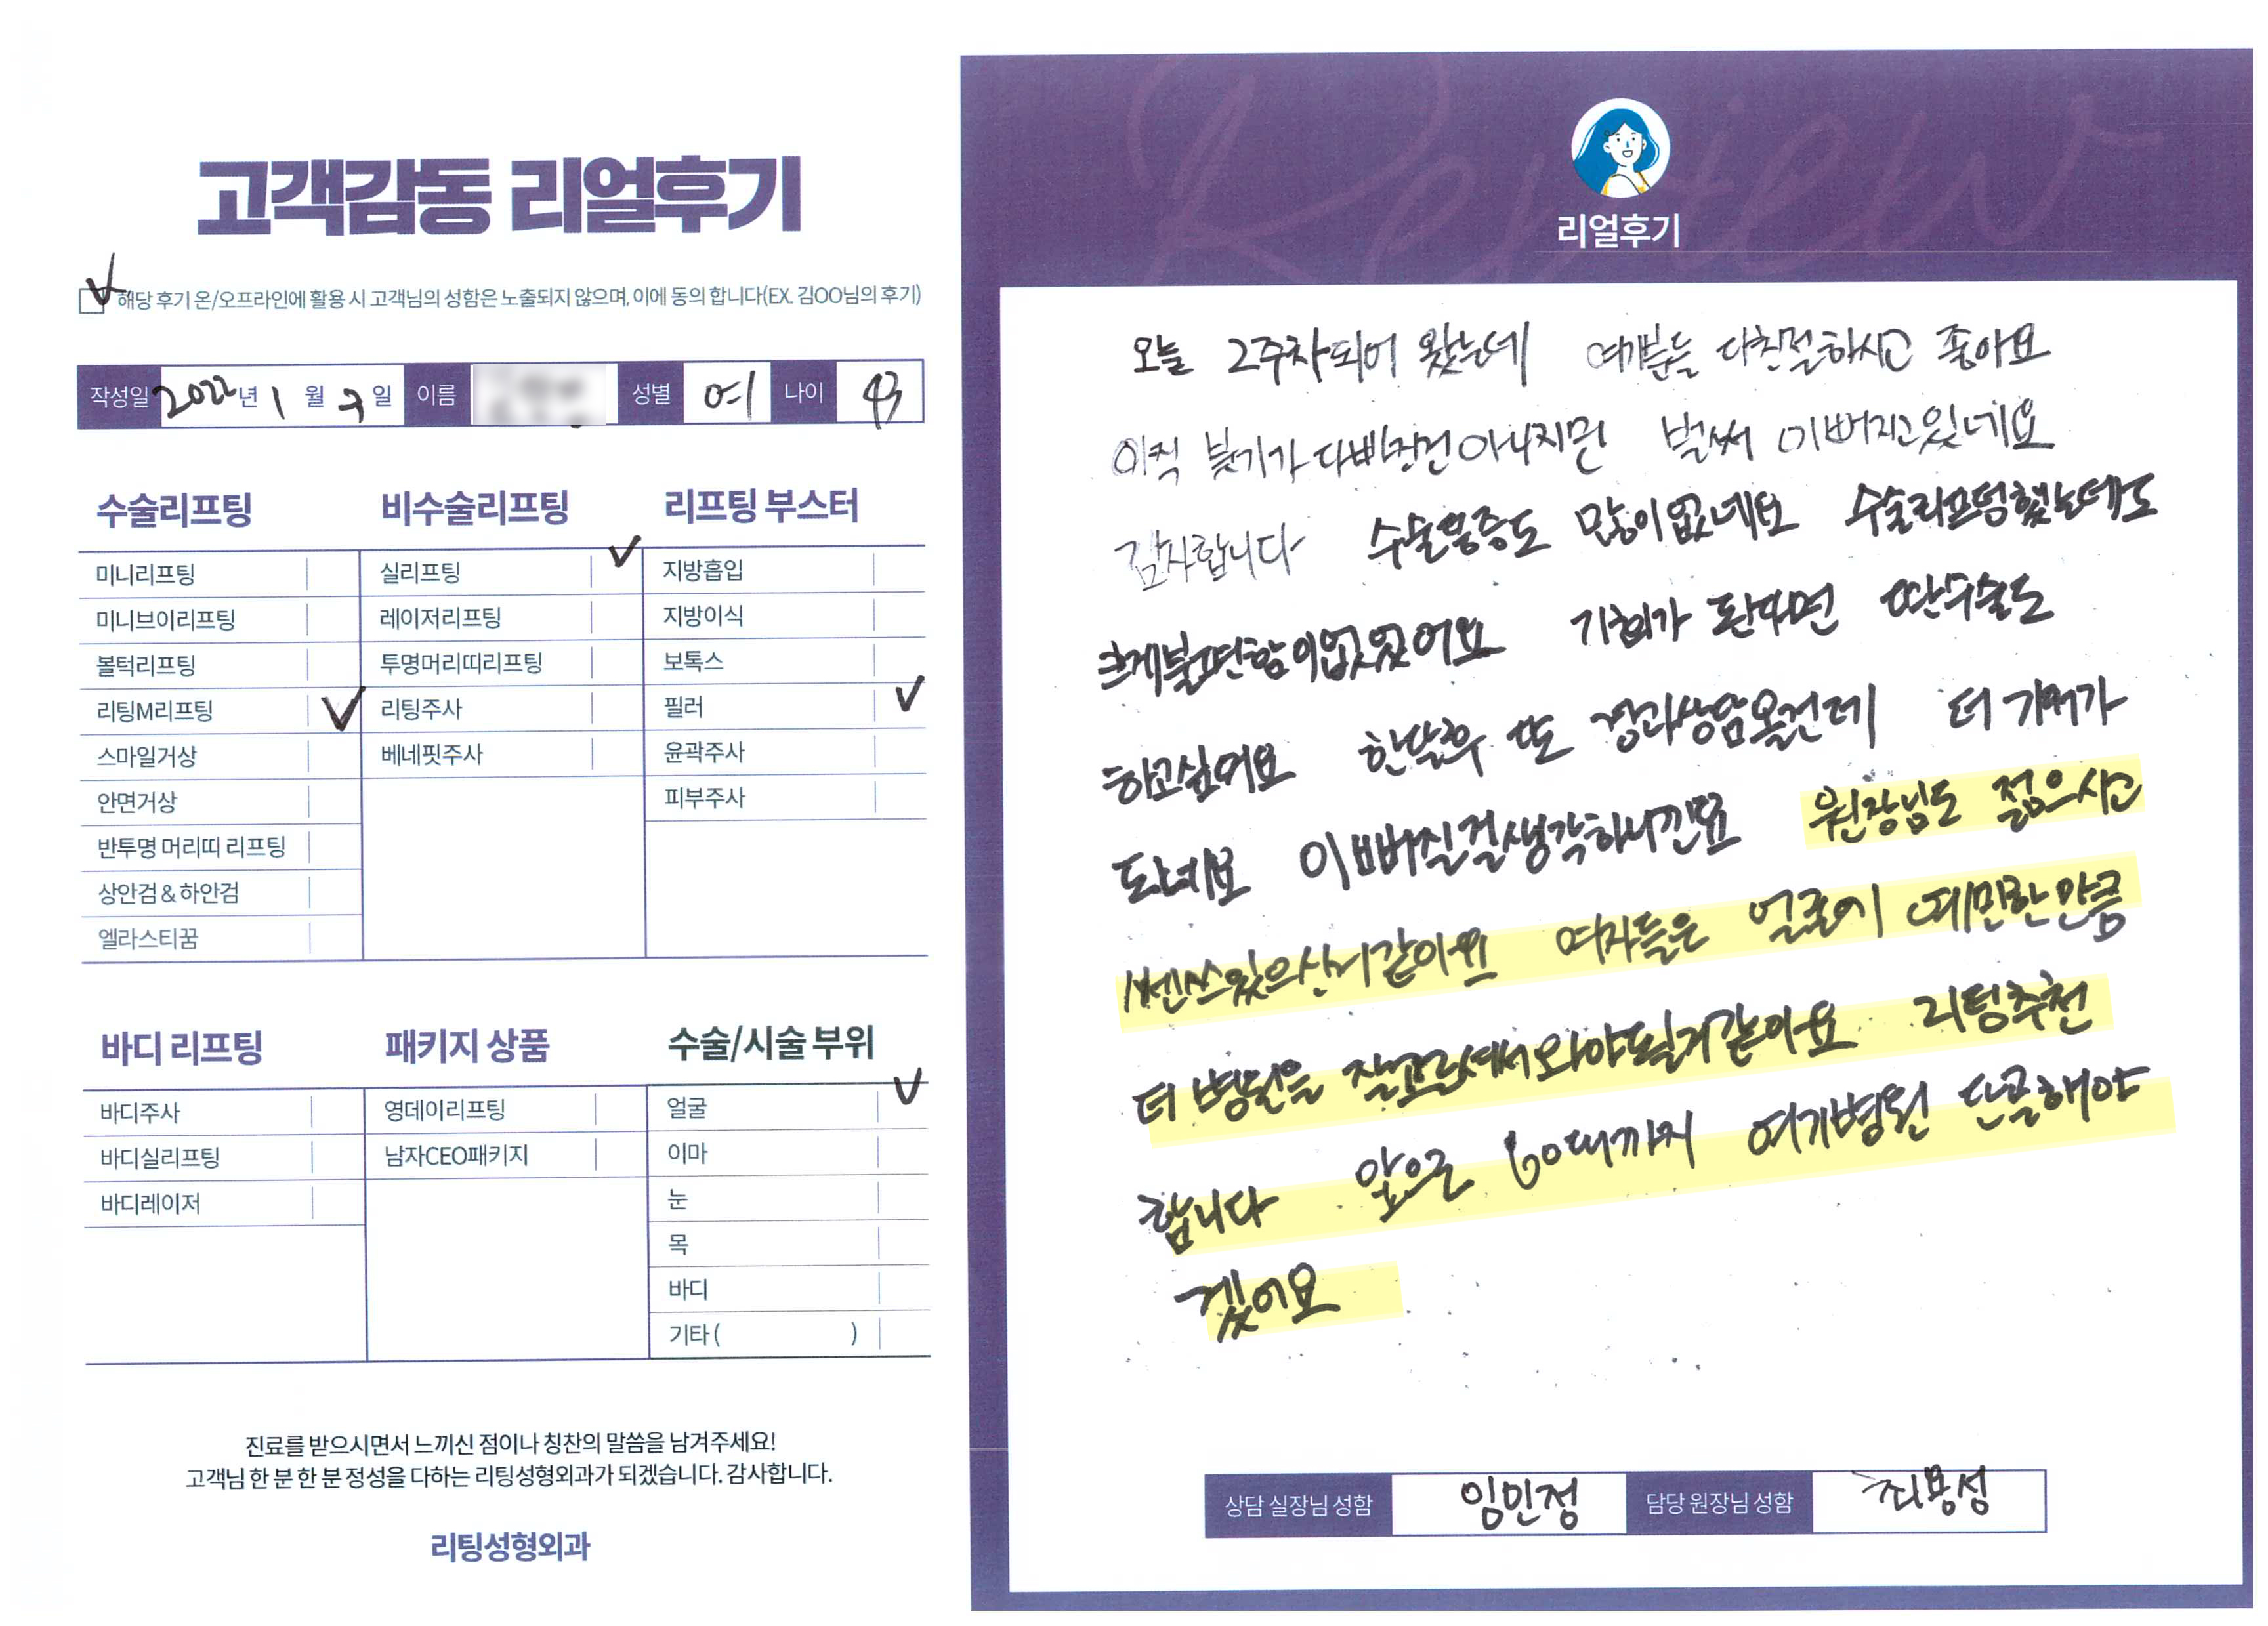 고객감동 리얼후기
해당 후기 온/오프라인에 활용 시 고객님의 성함은 노출되지 않으며, 이에 동의 합니다(EX. 김OO님의 후기)
작성일 2022년 1 월 7일 이름 성별 여 나이 43
수술리프팅 비수술리프팅 리프팅 부스터
미니리프팅 실리프팅 지방흡입
미니브이리프팅 레이저리프팅 지방이식
볼턱리프팅 투명머리띠리프팅 보톡스
리팅M리프팅 리팅주사 필러
스마일거상 베네핏주사 윤곽주사
안면거상 피부주사
반투명 머리띠 리프팅
상안검 & 하안검
엘라스티꿈
바디 리프팅 패키지 상품 수술/시술 부위
바디주사 영데이리프팅 얼굴
바디실리프팅 남자CEO패키지 이마
바디레이저 눈
목
바디
기타 ( )
진료를 받으시면서 느끼신 점이나 칭찬의 말씀을 남겨주세요!
고객님 한 분 한 분 정성을 다하는 리팅성형외과가 되겠습니다. 감사합니다.
리팅성형외과
Review
리얼후기
오늘 2주차되어 왔는데 여개분들 다친절하시고 좋아요
아직 붓기가 다빠진건아니지만 벌써 이뻐지고있네요
감사합니다 수술통증도 많이없네요 수술리프팅했는데도
크게불편함이없었어요 기회가 된다면 딴수술도
하고싶어요 한달후 또 경과상담올건데 더 기대가
되네요 이뻐질걸생각하니깐요 원장님도 젊으시고
쎈쓰있으신거같아요 여자들은 얼굴에 예민한만큼
더 병원을 잘고르셔서와야될거같아요 리팅추천
합니다 앞으로 60대까지 여기병원 단골해야
겠어요
상담 실장님 성함 임민정 담당 원장님 성함 최용성